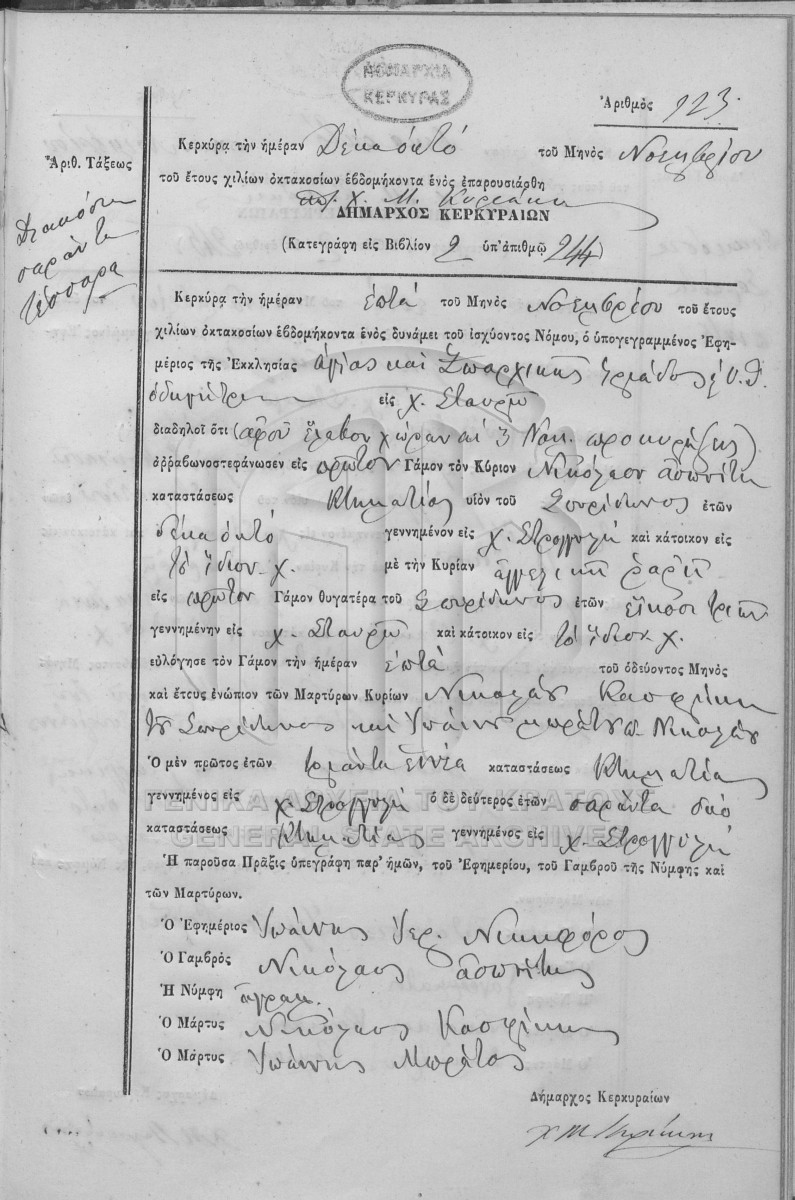 ΝΟΜΑΡΧΙΑ
ΚΕΡΚΥΡΑΣ
Ἀριθμὸς 123.
Ἀριθ. Τάξεως
Διακόσια
σαράντα
τέσσαρα
Κερκύρᾳ τὴν ἡμέραν Δέκα ὀκτὸ τοῦ Μηνὸς Νοεμβρίου
τοῦ ἔτους χιλίων ὀκτακοσίων ἑβδομήκοντα ἑνὸς ἐπαρουσιάρθη
Χ. Μ. Κυριάκη
ΔΗΜΑΡΧΟΣ ΚΕΡΚΥΡΑΙΩΝ
(Κατεγράφη εἰς Βιβλίον 2 ὑπ' ἀπιθμῷ 244)
Κερκύρᾳ τὴν ἡμέραν ἑπτὰ τοῦ Μηνὸς Νοεμβρίου τοῦ ἔτους
χιλίων ὀκτακοσίων ἑβδομήκοντα ἑνὸς δυνάμει τοῦ ἰσχύοντος Νόμου, ὁ ὑπογεγραμμένος Ἐφη-
μέριος τῆς Ἐκκλησίας ἁγίας καὶ Ζωαρχικῆς τριάδος
ὁδηγήτρια εἰς χ. Σταυρῷ
διαδηλοῖ ὅτι (ἀφοῦ ἔλαβον χώραν αἱ 3 Νομ. προκηρύξεις)
ἀῤῥαβωνοστεφάνωσεν εἰς πρῶτον Γάμον τὸν Κύριον Νικόλαον ἀσπιώτη
καταστάσεως Κτηματίας υἱὸν τοῦ Σπυρίδωνος ἐτῶν
δέκα ὀκτὸ γεννημένον εἰς χ. Στρογγυλὴ καὶ κάτοικον εἰς
τὸ ἴδιον. χ. μὲ τὴν Κυρίαν ἀγγελικὴ
εἰς πρῶτον Γάμον θυγατέρα τοῦ Σπυρίδωνος ἐτῶν εἴκοσι τριῶν
γεννημένην εἰς χ. Σταυρῷ καὶ κάτοικον εἰς τὸ ἴδιον. χ.
εὐλόγησε τὸν Γάμον τὴν ἡμέραν ἑπτὰ τοῦ ὁδεύοντος Μηνὸς
καὶ ἔτους ἐνώπιον τῶν Μαρτύρων Κυρίων Νικολάου Κασφίκη
τοῦ Σπυρίδωνος καὶ Ἰωάννου μωράτου π. Νικολάου
Ὁ μὲν πρῶτος ἐτῶν τριάντα ἐννέα καταστάσεως Κτηματίας
γεννημένος εἰς χ. Στρογγυλὴ ὁ δὲ δεύτερος ἐτῶν σαράντα δύο
καταστάσεως Κτηματίας γεννημένος εἰς χ. Στρογγυλὴ
ΓΕΝΙΚΑ ΑΡΧΕΙΑ ΤΟΥ ΚΡΑΤΟΥΣ
GENERAL STATE ARCHIVES
Ἡ παροῦσα Πρᾶξις ὑπεγράφη παρ' ἡμῶν, τοῦ Ἐφημερίου, τοῦ Γαμβροῦ τῆς Νύμφης καὶ
τῶν Μαρτύρων.
Ὁ Ἐφημέριος Ἰωάννης Ἱερ. Νικηφόρος
Ὁ Γαμβρὸς Νικόλαος ἀσπιώτης
Ἡ Νύμφη ἀγραμ.
Ὁ Μάρτυς Νικόλαος Κασφίκης
Ὁ Μάρτυς Ἰωάννης Μωράτος
Δήμαρχος Κερκυραίων